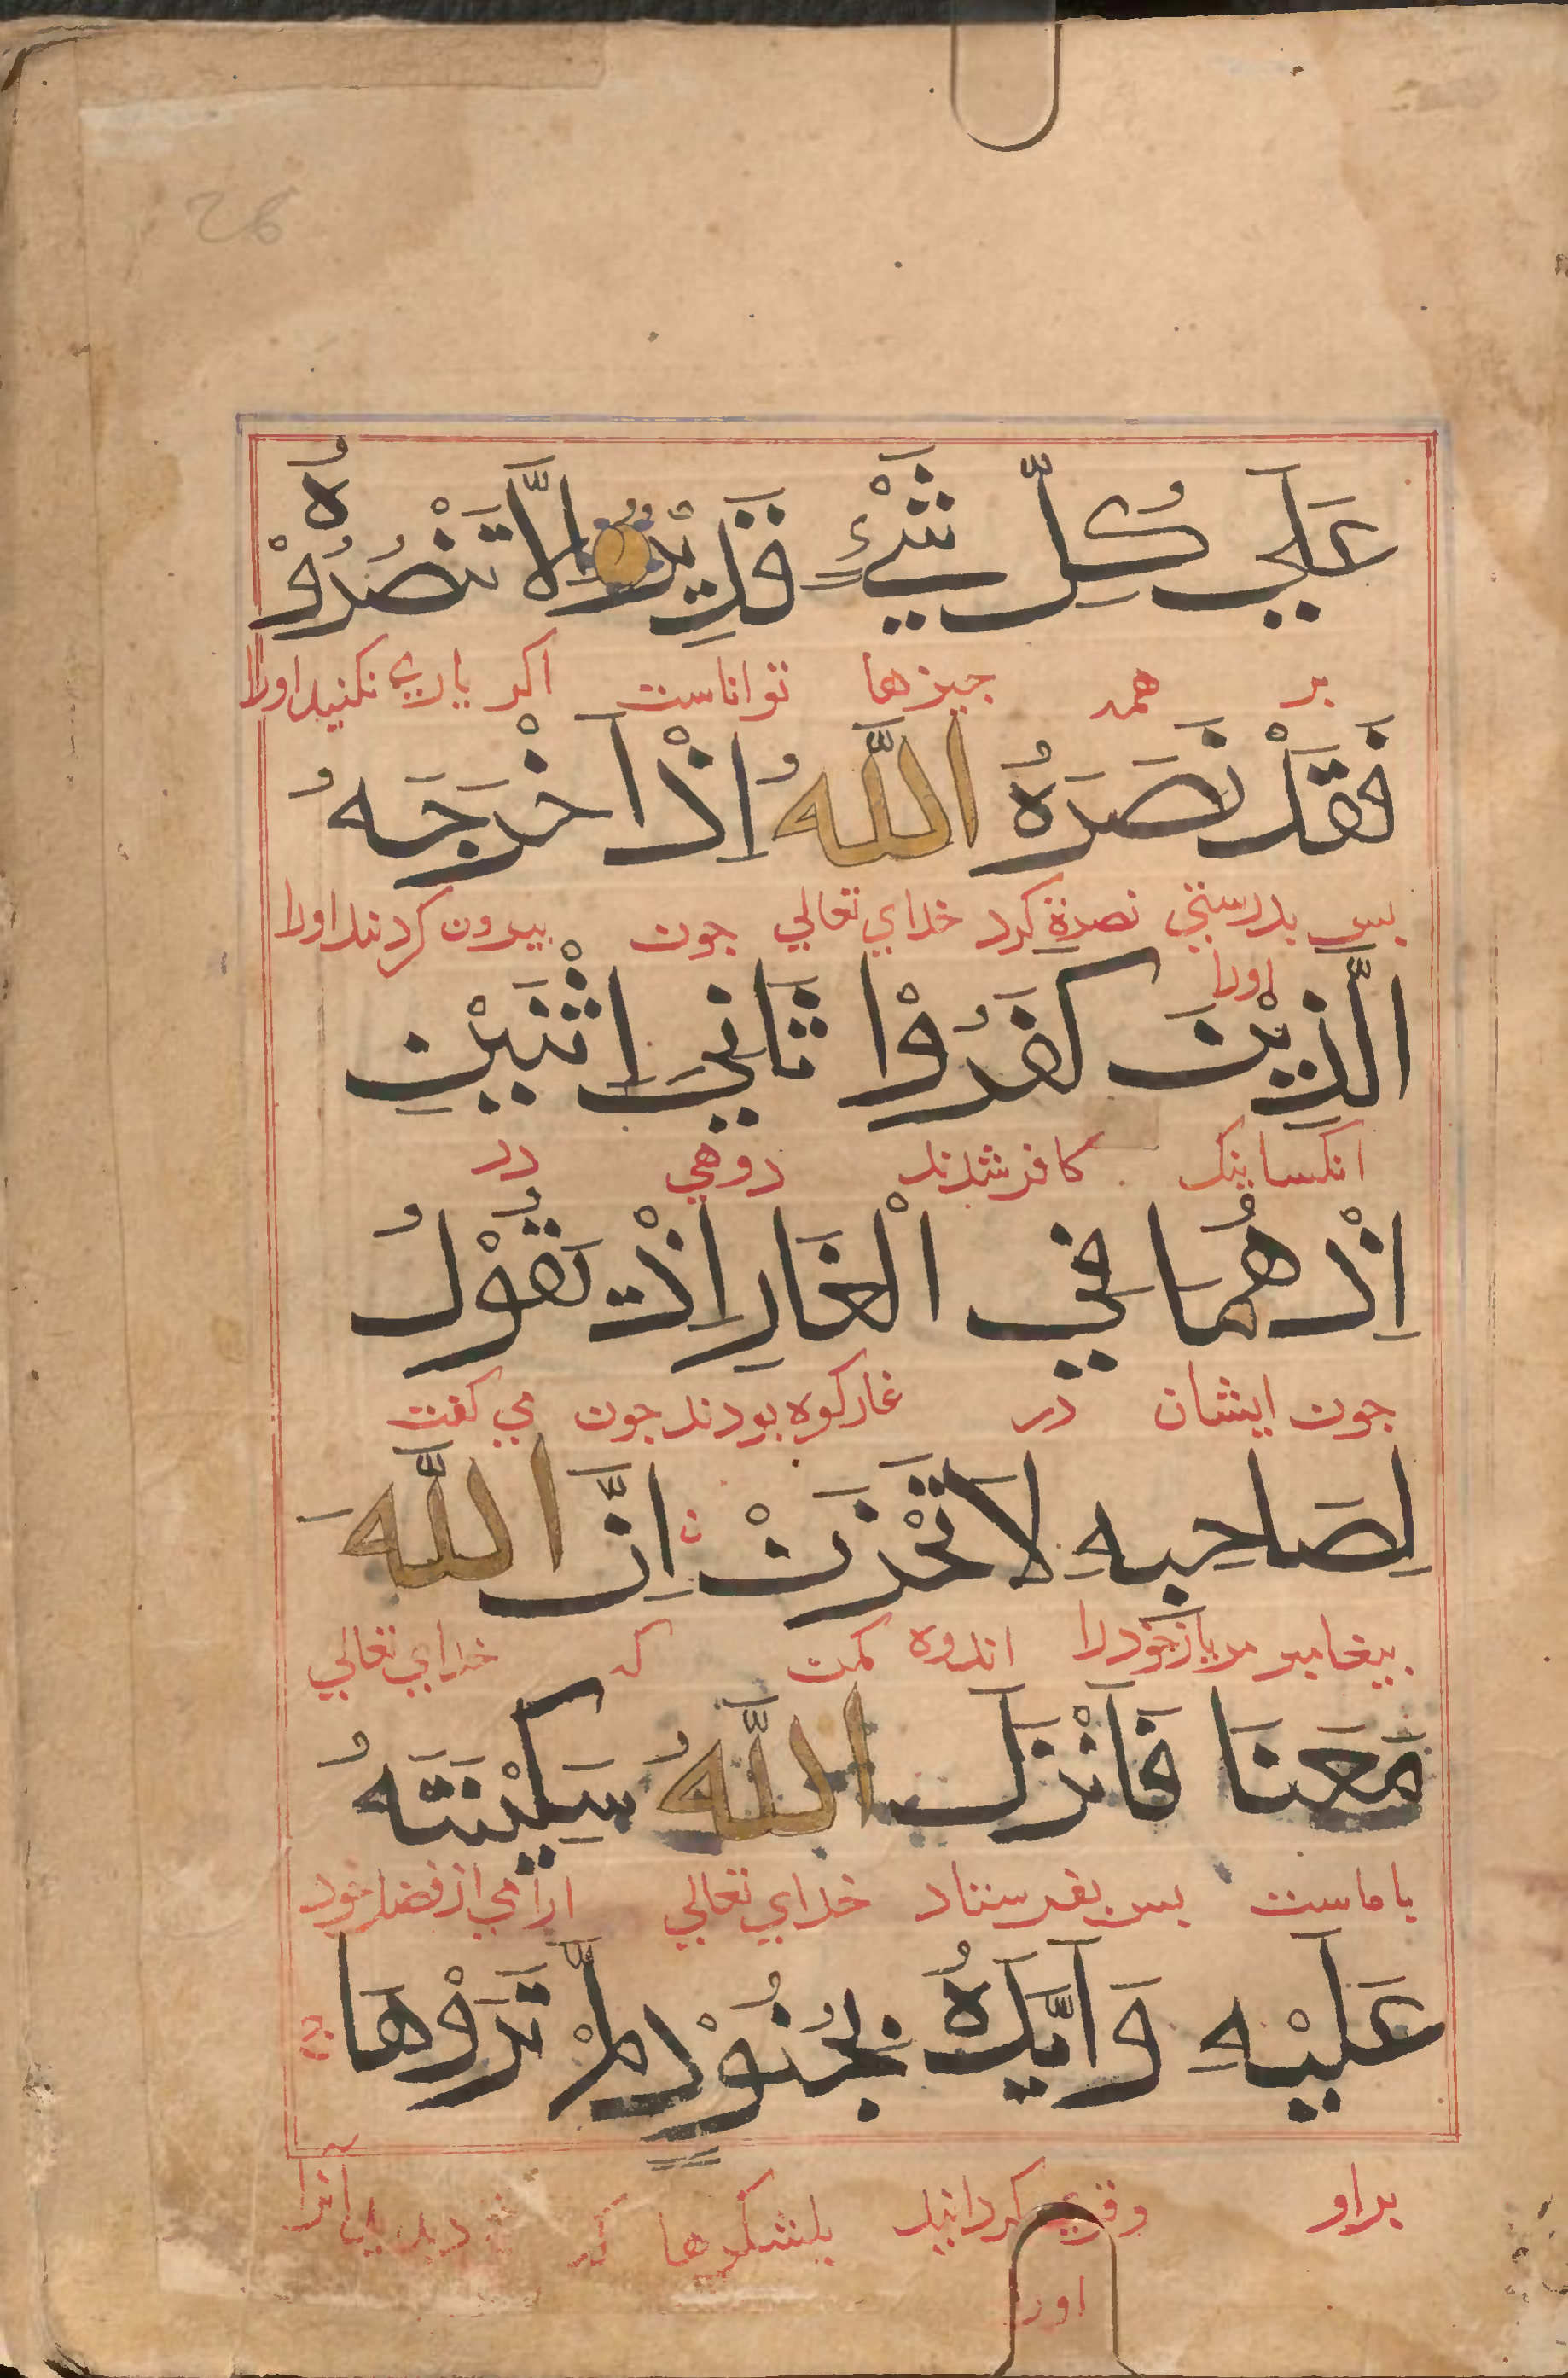 26
عَلَي كُلِّ شَيْءٍ قَدِيْرٌ اِلَّا تَنْصُرُوْهُ
بر همه جيزها تواناست اكر ياري نكنيد اورا
فَقَدْ نَصَرَهُ اللَّهُ اِذْ اَخْرَجَهُ
بس بدرستي نصرة كرد خداي تعالي جون بيرون كردند اورا
اورا
الَّذِيْنَ كَفَرُوْا ثَانِيَ اثْنَيْنِ
انكسانيك كافر شدند دوهي در
اِذْ هُمَا فِي الْغَارِ اِذْ يَقُوْلُ
جون ايشان در غار كوه بودند جون مي كفت
لِصَاحِبِهِ لَا تَحْزَنْ اِنَّ اللَّهَ
بيغامبر مر يار خود را اندوه مكن كه خداي تعالي
مَعَنَا فَاَنْزَلَ اللَّهُ سَكِيْنَتَهُ
با ماست بس بفرستاد خداي تعالي ارامي از فضل خود
عَلَيْهِ وَاَيَّدَهُ بِجُنُوْدٍ لَّمْ تَرَوْهَا
براو وقوي كردانيد بلشكرها كه ديديد آنرا
اورا